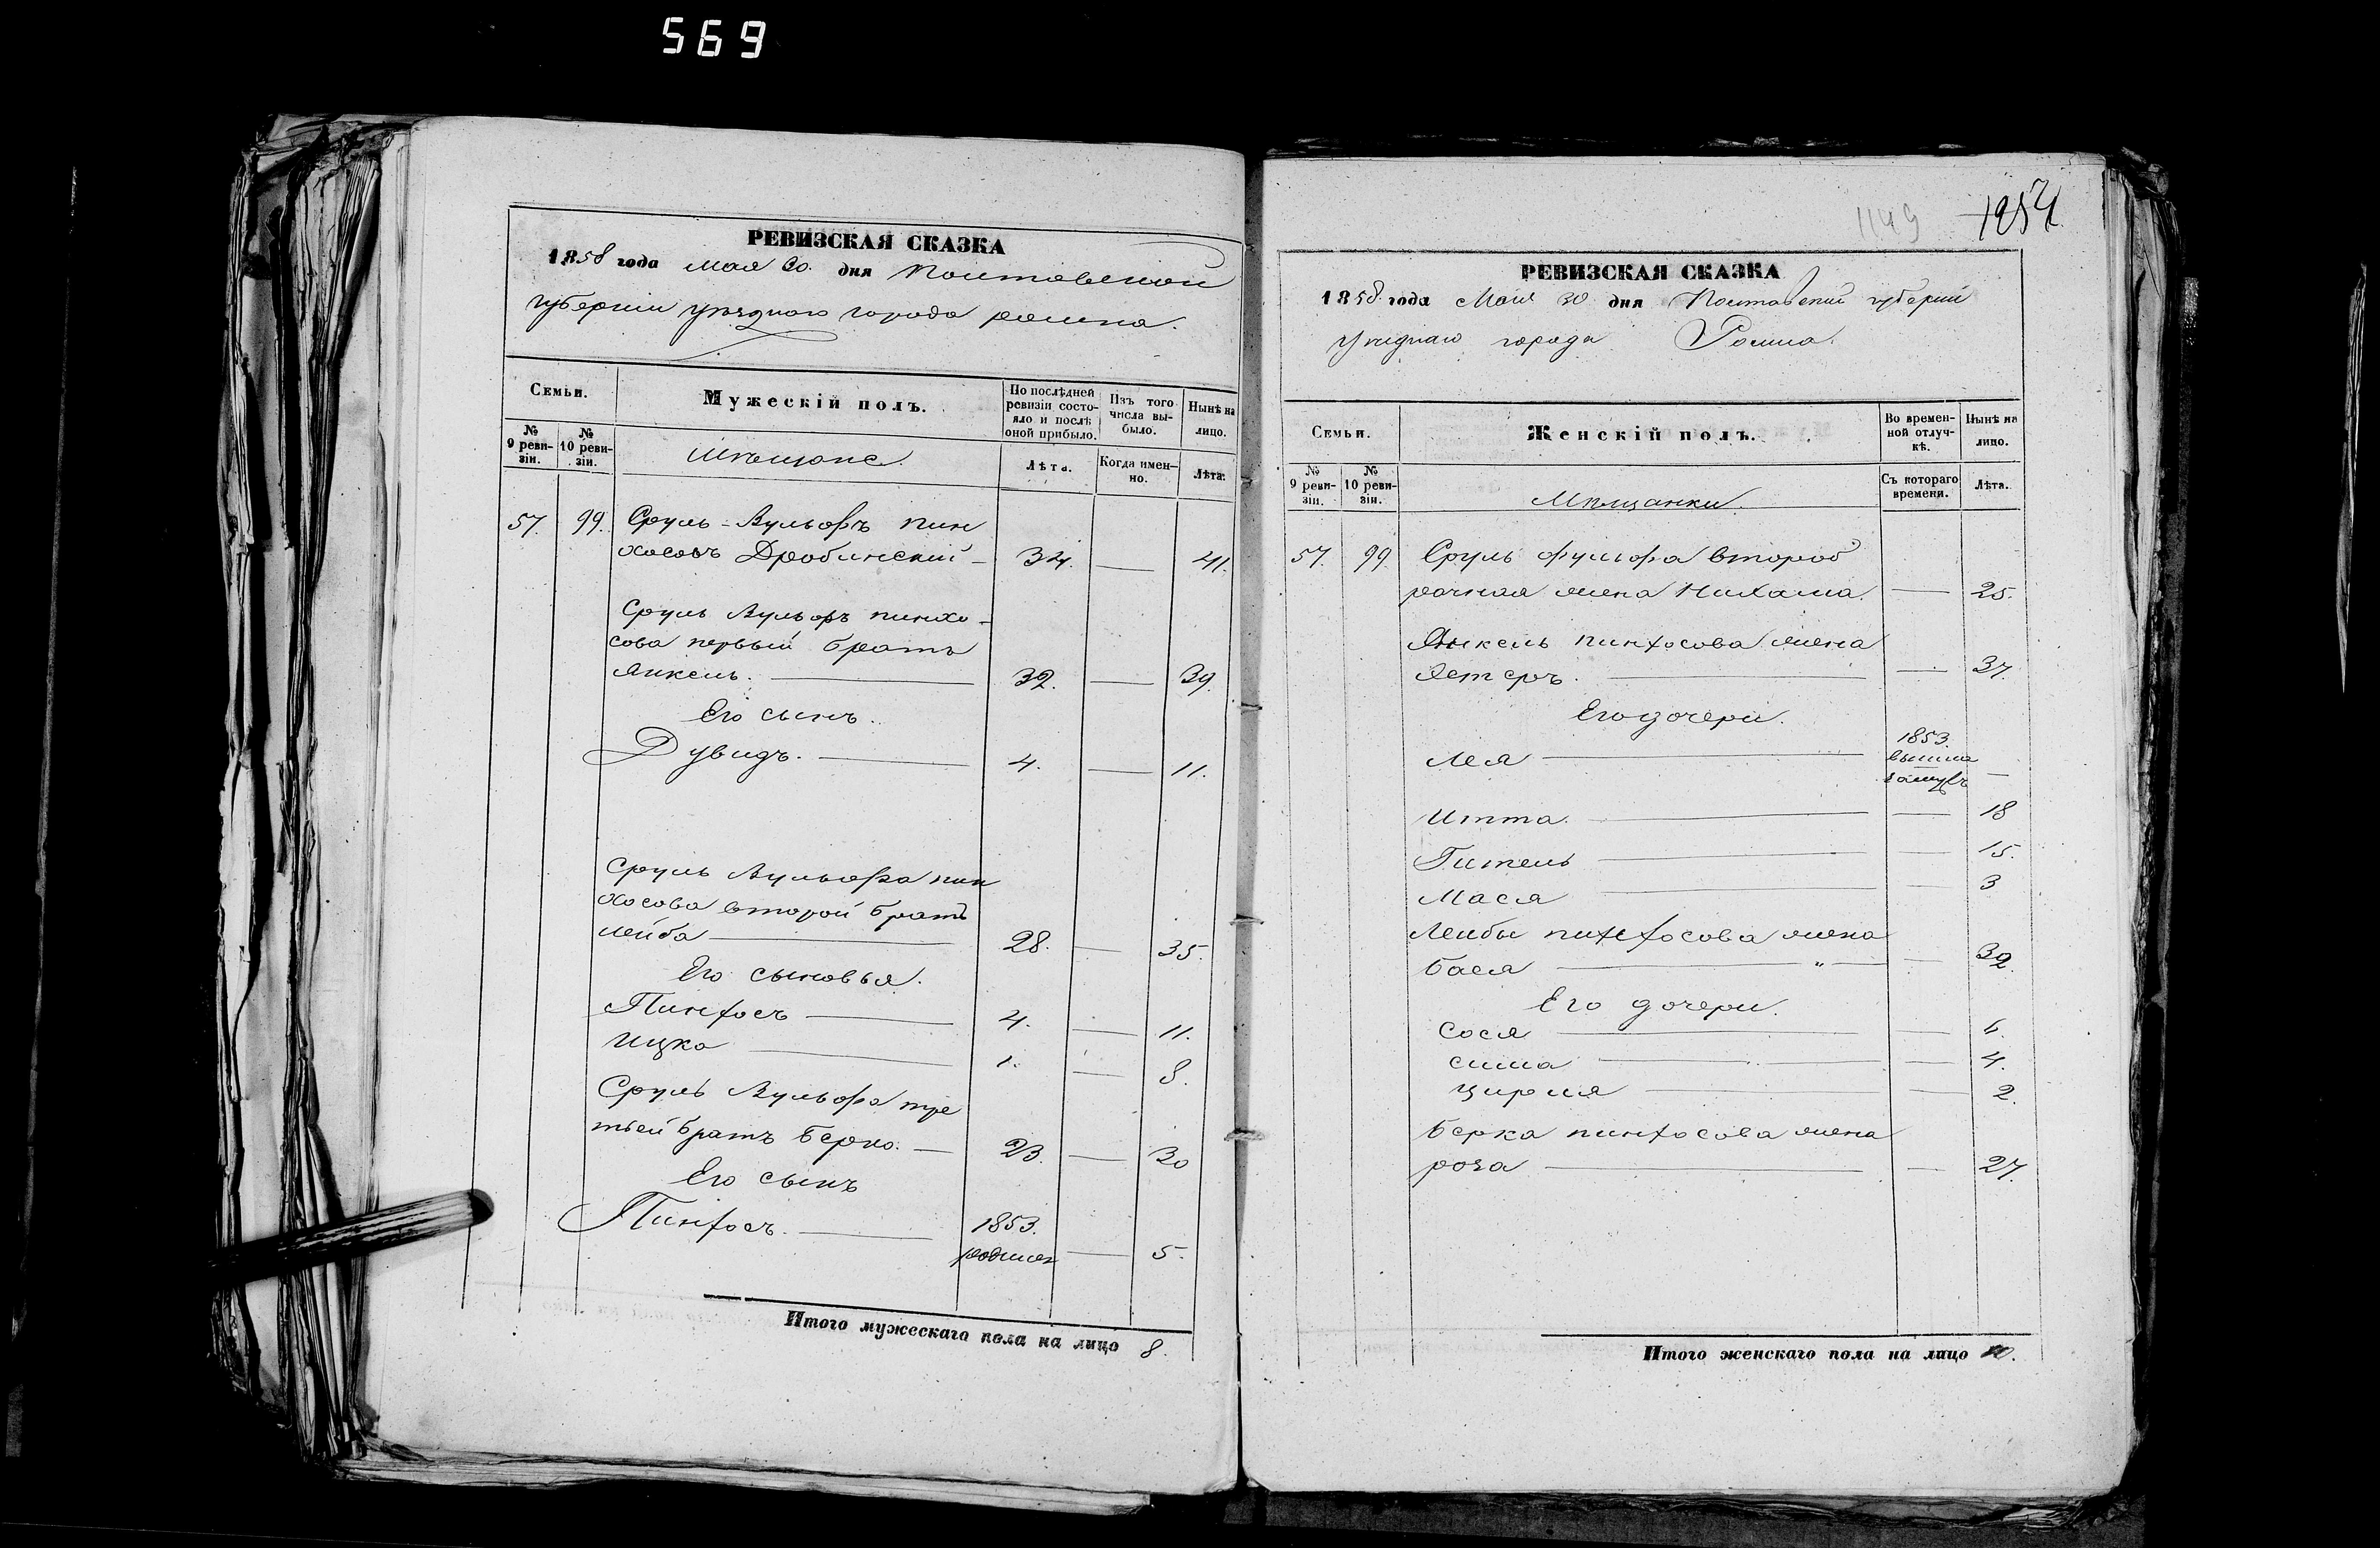 569
РЕВИЗСКАЯ СКАЗКА
1858 года мая 30. дня Полтавской
губерніи уѣзднаго города ромна.
Семьи.
Мужескій полъ.
По послѣдней ревизіи состояло и послѣ оной прибыло.
Изъ того числа выбыло.
Нынѣ на лицо.
№ 9 ревизіи.
№ 10 ревизіи.
Мѣщане.
Лѣта.
Когда именно.
Лѣта.
57. 99. Сруль-Вульфъ пин
хосовъ Дробинскій — 34. — 41.
Сруль Вульфъ пинхо-
сова первый братъ
Янкель. — 32. — 39.
Его сынъ.
Дувидъ. — 4. — 11.
Сруль Вульфа пин
хосова второй братъ
лейба — 28. — 35.
Его сыновья.
Пинхосъ — 4. — 11.
Ицко — 1. — 8.
Сруль Вульфа тре
тьей братъ берко. — 23. — 30
Его сынъ
Пинхосъ. — 1853.
родился — 5.
Итого мужескаго пола на лицо 8.
1149
РЕВИЗСКАЯ СКАЗКА
1858 года Мая 30 дня Полтавской губерніи
Уѣзднаго города Ромна.
Семьи.
Женскій полъ.
Во временной отлучкѣ.
Нынѣ на лицо.
№ 9 ревизіи.
№ 10 ревизіи.
Мѣщанки.
Съ котораго времени.
Лѣта.
57. 99. Сруль вульфа второб
рачная жена Нихама. — 25.
Янкель пинхосова жена
Эстеръ. — — 37.
Его дочери.
Лея — 1853. вышла замужъ —
Итта. — — 18
Гитель — — 15.
Мася — — 3
Лейбы пинхосова жена
бася — " — — 32.
Его дочери.
Сося — — 6.
сима — — 4.
цирля — — 2.
берка пинхосова жена
роза — — 27.
Итого женскаго пола на лицо 10.